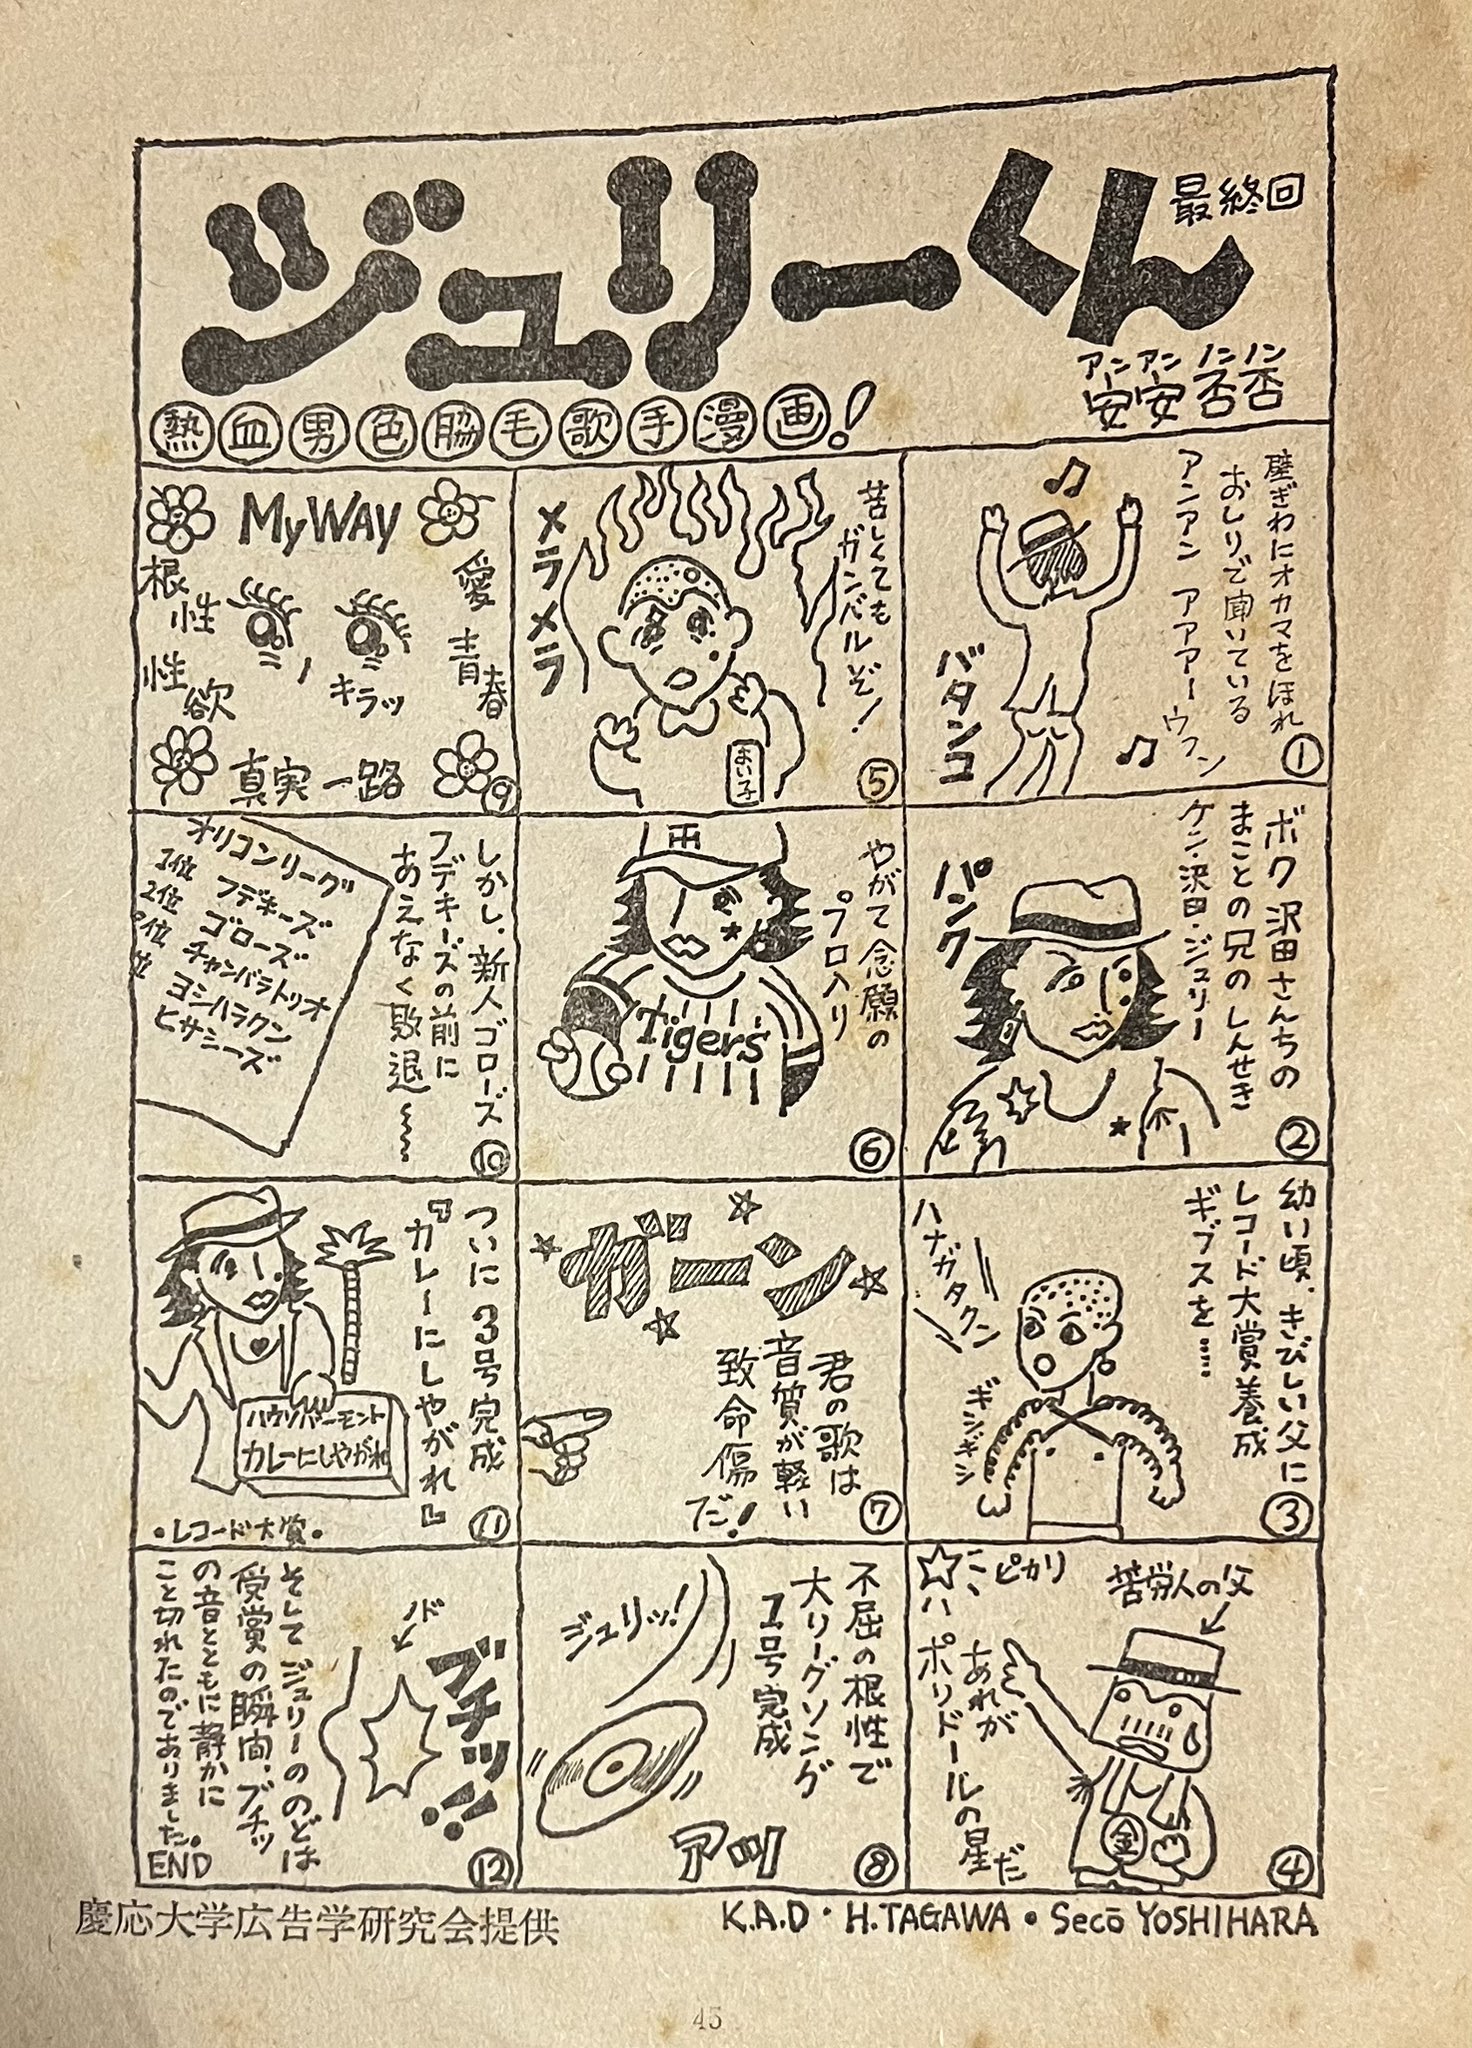 ジュリーくん
最終回
アンアン ノンノン
安安 否否
熱血男色脇毛歌手漫画!
壁ぎわにオカマをほれ
おしりで聞いている
アンアン アアアーウフン
バタンコ
①
ボク沢田さんちの
まことの兄のしんせき
ケン・沢田・ジュリー
パンク
②
幼い頃、きびしい父に
レコード大賞養成
ギブスを……
ハナガタクン
ギシギシ
③
ピカリ
苦労人の父
あれが
ポリドールの星だ
金
④
苦しくても
ガンバルぞ!
メラメラ
よい子
⑤
やがて念願の
プロ入り
Tigers
⑥
ガーン
君の歌は
音質が軽い
致命傷
だ!
⑦
不屈の根性で
大リーグソング
1号完成
ジュリッ!
アッ
⑧
My WAY
愛
青春
根性
性欲
キラッ
真実一路
⑨
しかし、新人ゴローズ
フデキーズの前に
あえなく敗退
オリコンリーグ
1位 フデキーズ
2位 ゴローズ
位 チャンバラトリオ
位 ヨシハラクン
ヒサミーズ
⑩
ついに3号完成
『カレーにしやがれ』
ハウリバーモント
カレーにしやがれ
・レコード大賞・
⑪
そしてジュリーののどは
受賞の瞬間、ブチッ
の音とともに静かに
こと切れたのでありました。
END
ノド
ブチッ!!
⑫
慶応大学広告学研究会提供
K.A.D・H.TAGAWA・Secō YOSHIHARA
45